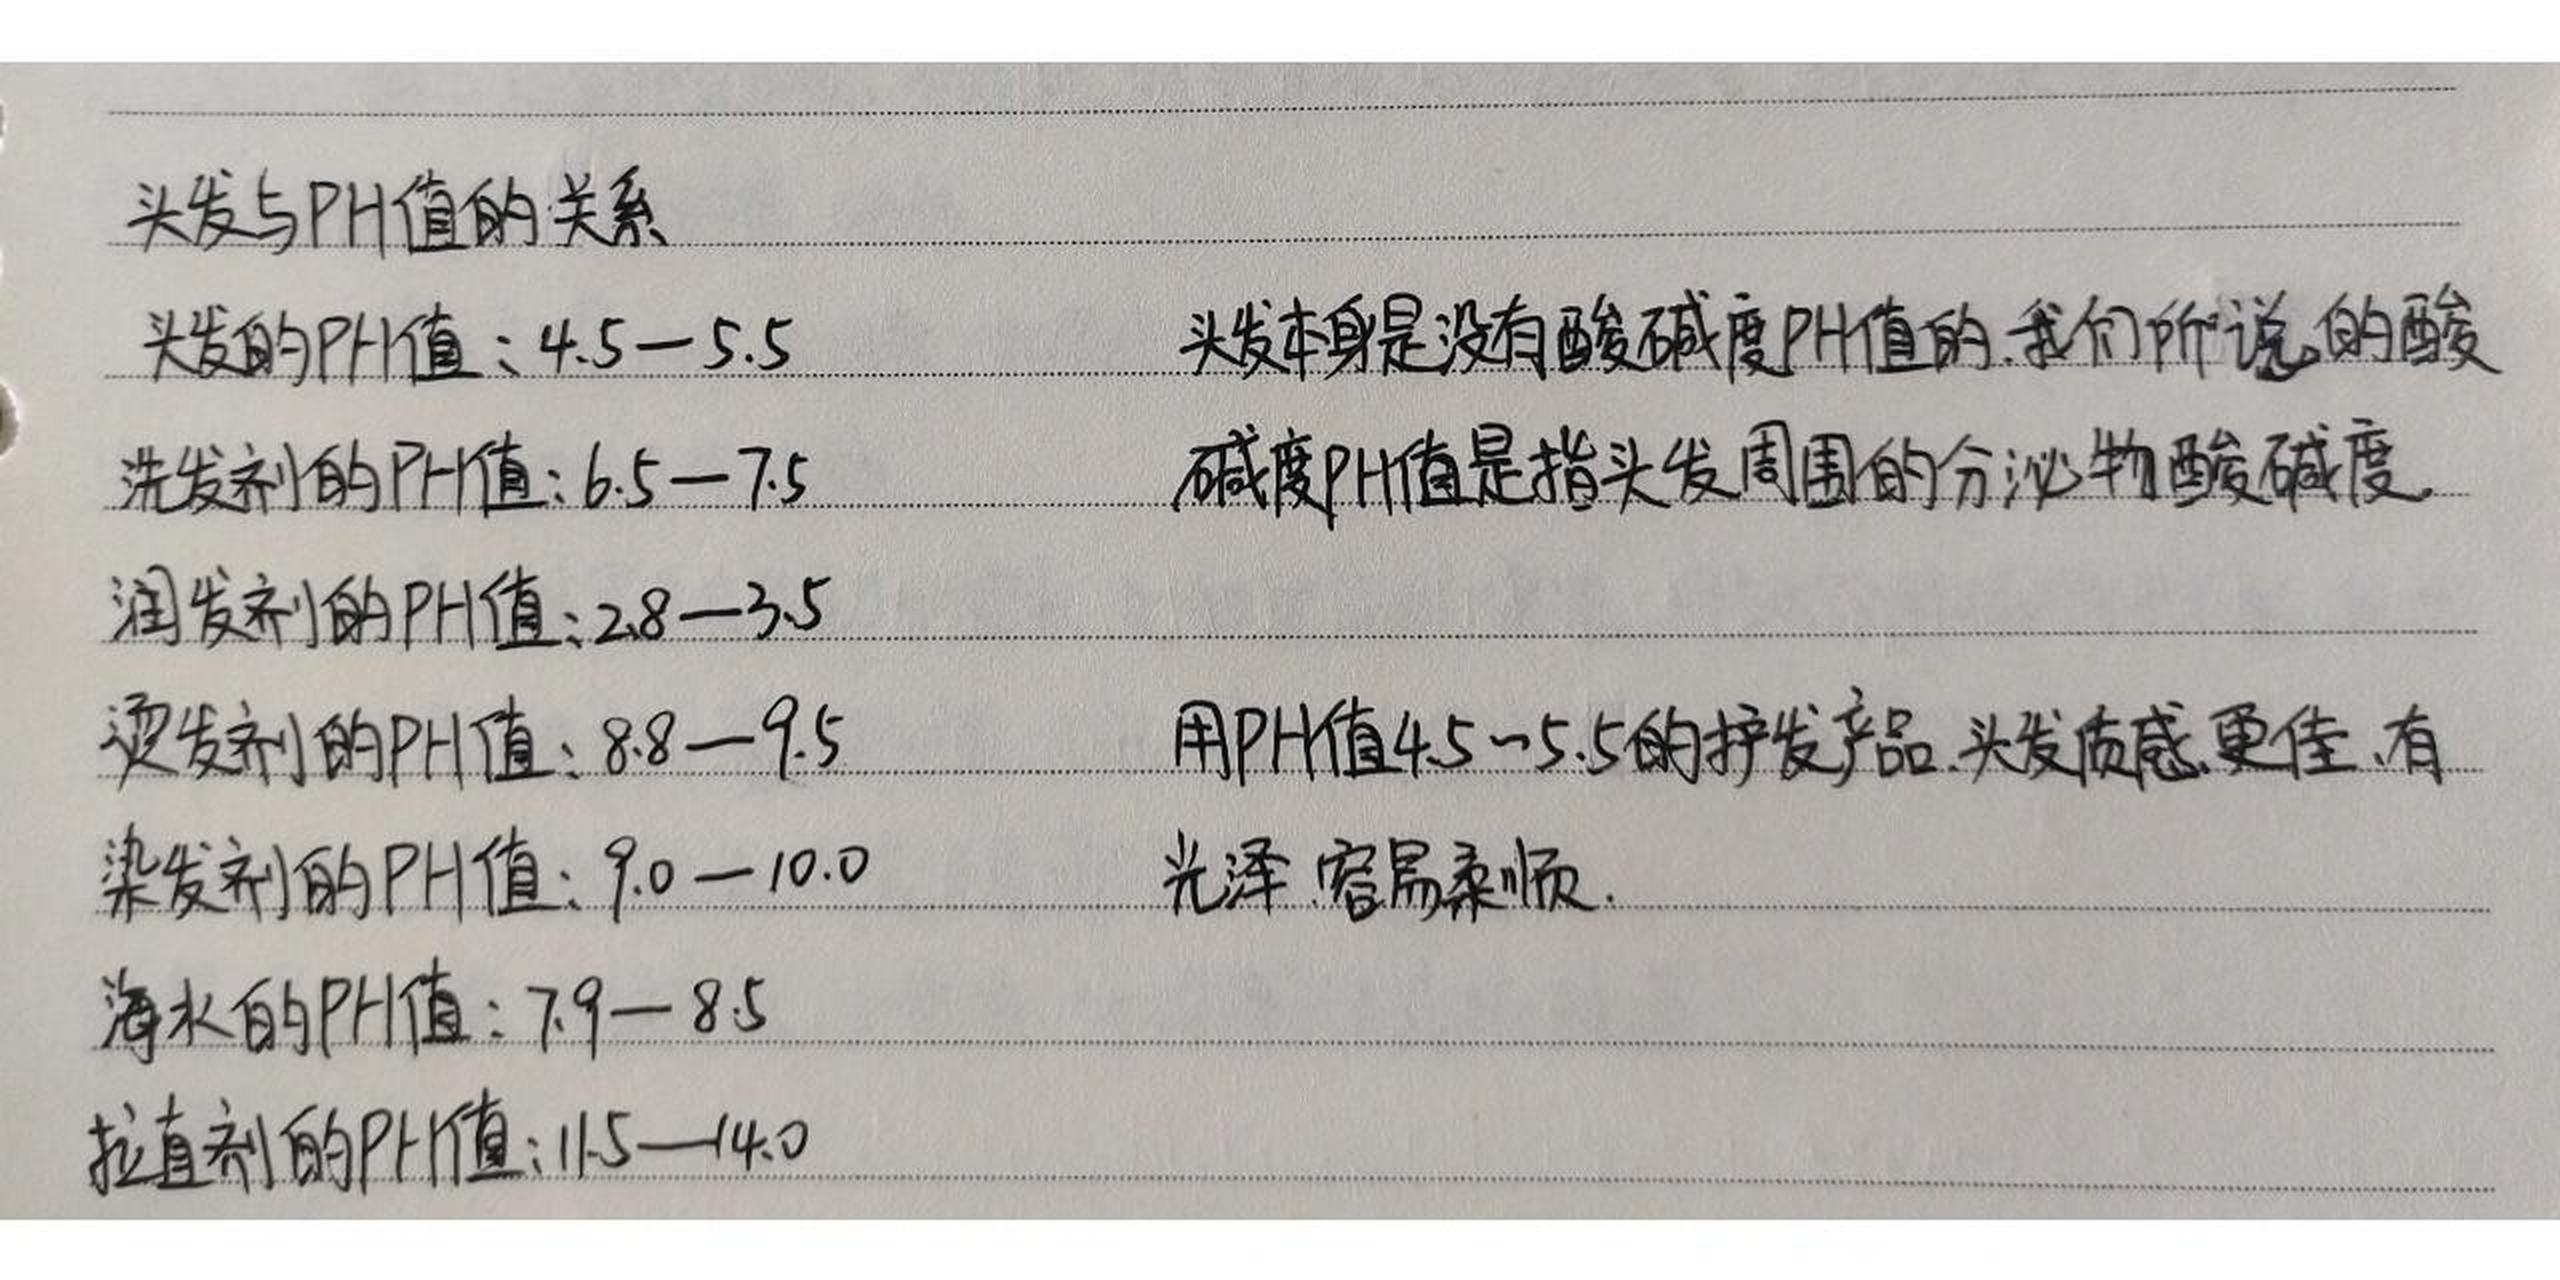 头发与PH值的关系
头发的PH值：4.5—5.5
头发本身是没有酸碱度PH值的.我们所说的酸
洗发剂的PH值：6.5—7.5
碱度PH值是指头发周围的分泌物酸碱度.
润发剂的PH值：2.8—3.5
烫发剂的PH值：8.8—9.5
用PH值4.5~5.5的护发产品.头发质感更佳、有
染发剂的PH值：9.0—10.0
光泽.容易柔顺.
海水的PH值：7.9—8.5
拉直剂的PH值：11.5—14.0